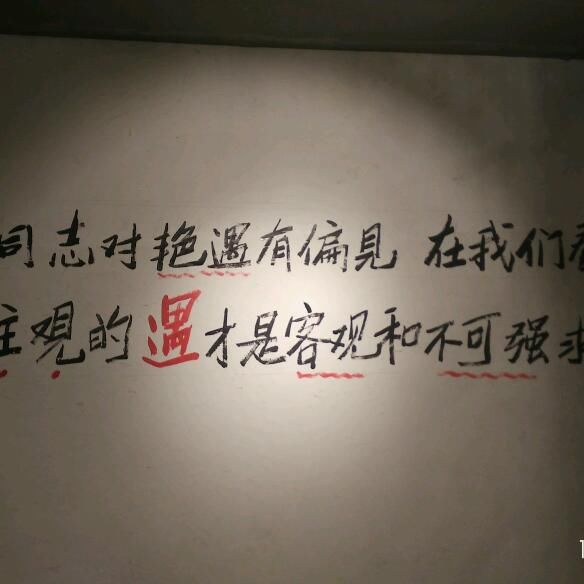 同志对艳遇有偏見 在我们看
主观的遇才是客观和不可强求